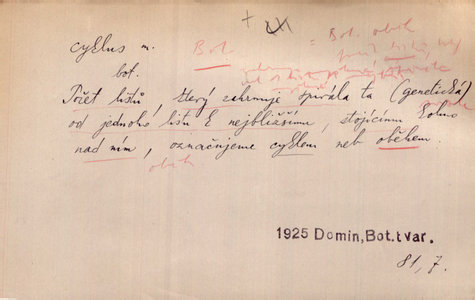 +
cyklus m.
Bot.
= Bot. oběh
bot.
Počet listů, který zahrnuje spirála ta (genetická)
od jednoho listu k nejbližšímu, stojícímu kolmo
nad ním, označujeme cyklem neb oběhem.
oběh
1925 Domin, Bot.tvar.
81, 7.